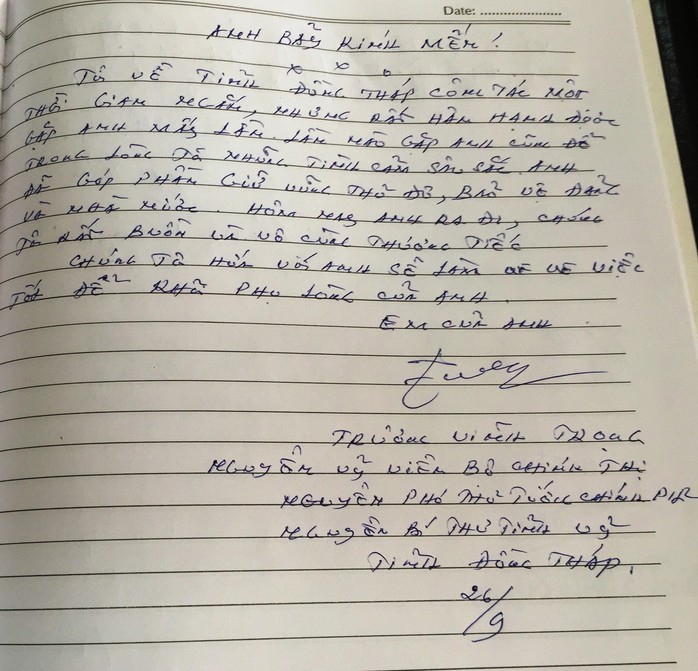 Date: ........................
ANH BẢY KÍNH MẾN!
TÔI VỀ TỈNH ĐỒNG THÁP CÔNG TÁC MỘT
THỜI GIAN NGẮN, NHƯNG RẤT HÂN HẠNH ĐƯỢC
GẶP ANH MẤY LẦN. LẦN NÀO GẶP ANH CŨNG ĐỂ
TRONG LÒNG TÔI NHỮNG TÌNH CẢM SÂU SẮC. ANH
ĐÃ GÓP PHẦN GIỮ VỮNG THỦ ĐÔ, BẢO VỆ ĐẢNG
VÀ NHÀ NƯỚC. HÔM NAY ANH RA ĐI, CHÚNG
TÔI RẤT BUỒN VÀ VÔ CÙNG THƯƠNG TIẾC
CHÚNG TÔI HỨA VỚI ANH SẼ LÀM VIỆC
TỐT ĐỂ KHỎI PHỤ LÒNG CỦA ANH.
EM CỦA ANH
TRƯƠNG VĨNH TRỌNG
NGUYÊN UỶ VIÊN BỘ CHÍNH TRỊ
NGUYÊN PHÓ THỦ TƯỚNG CHÍNH PHỦ
NGUYÊN BÍ THƯ TỈNH UỶ
TỈNH ĐỒNG THÁP.
26/9